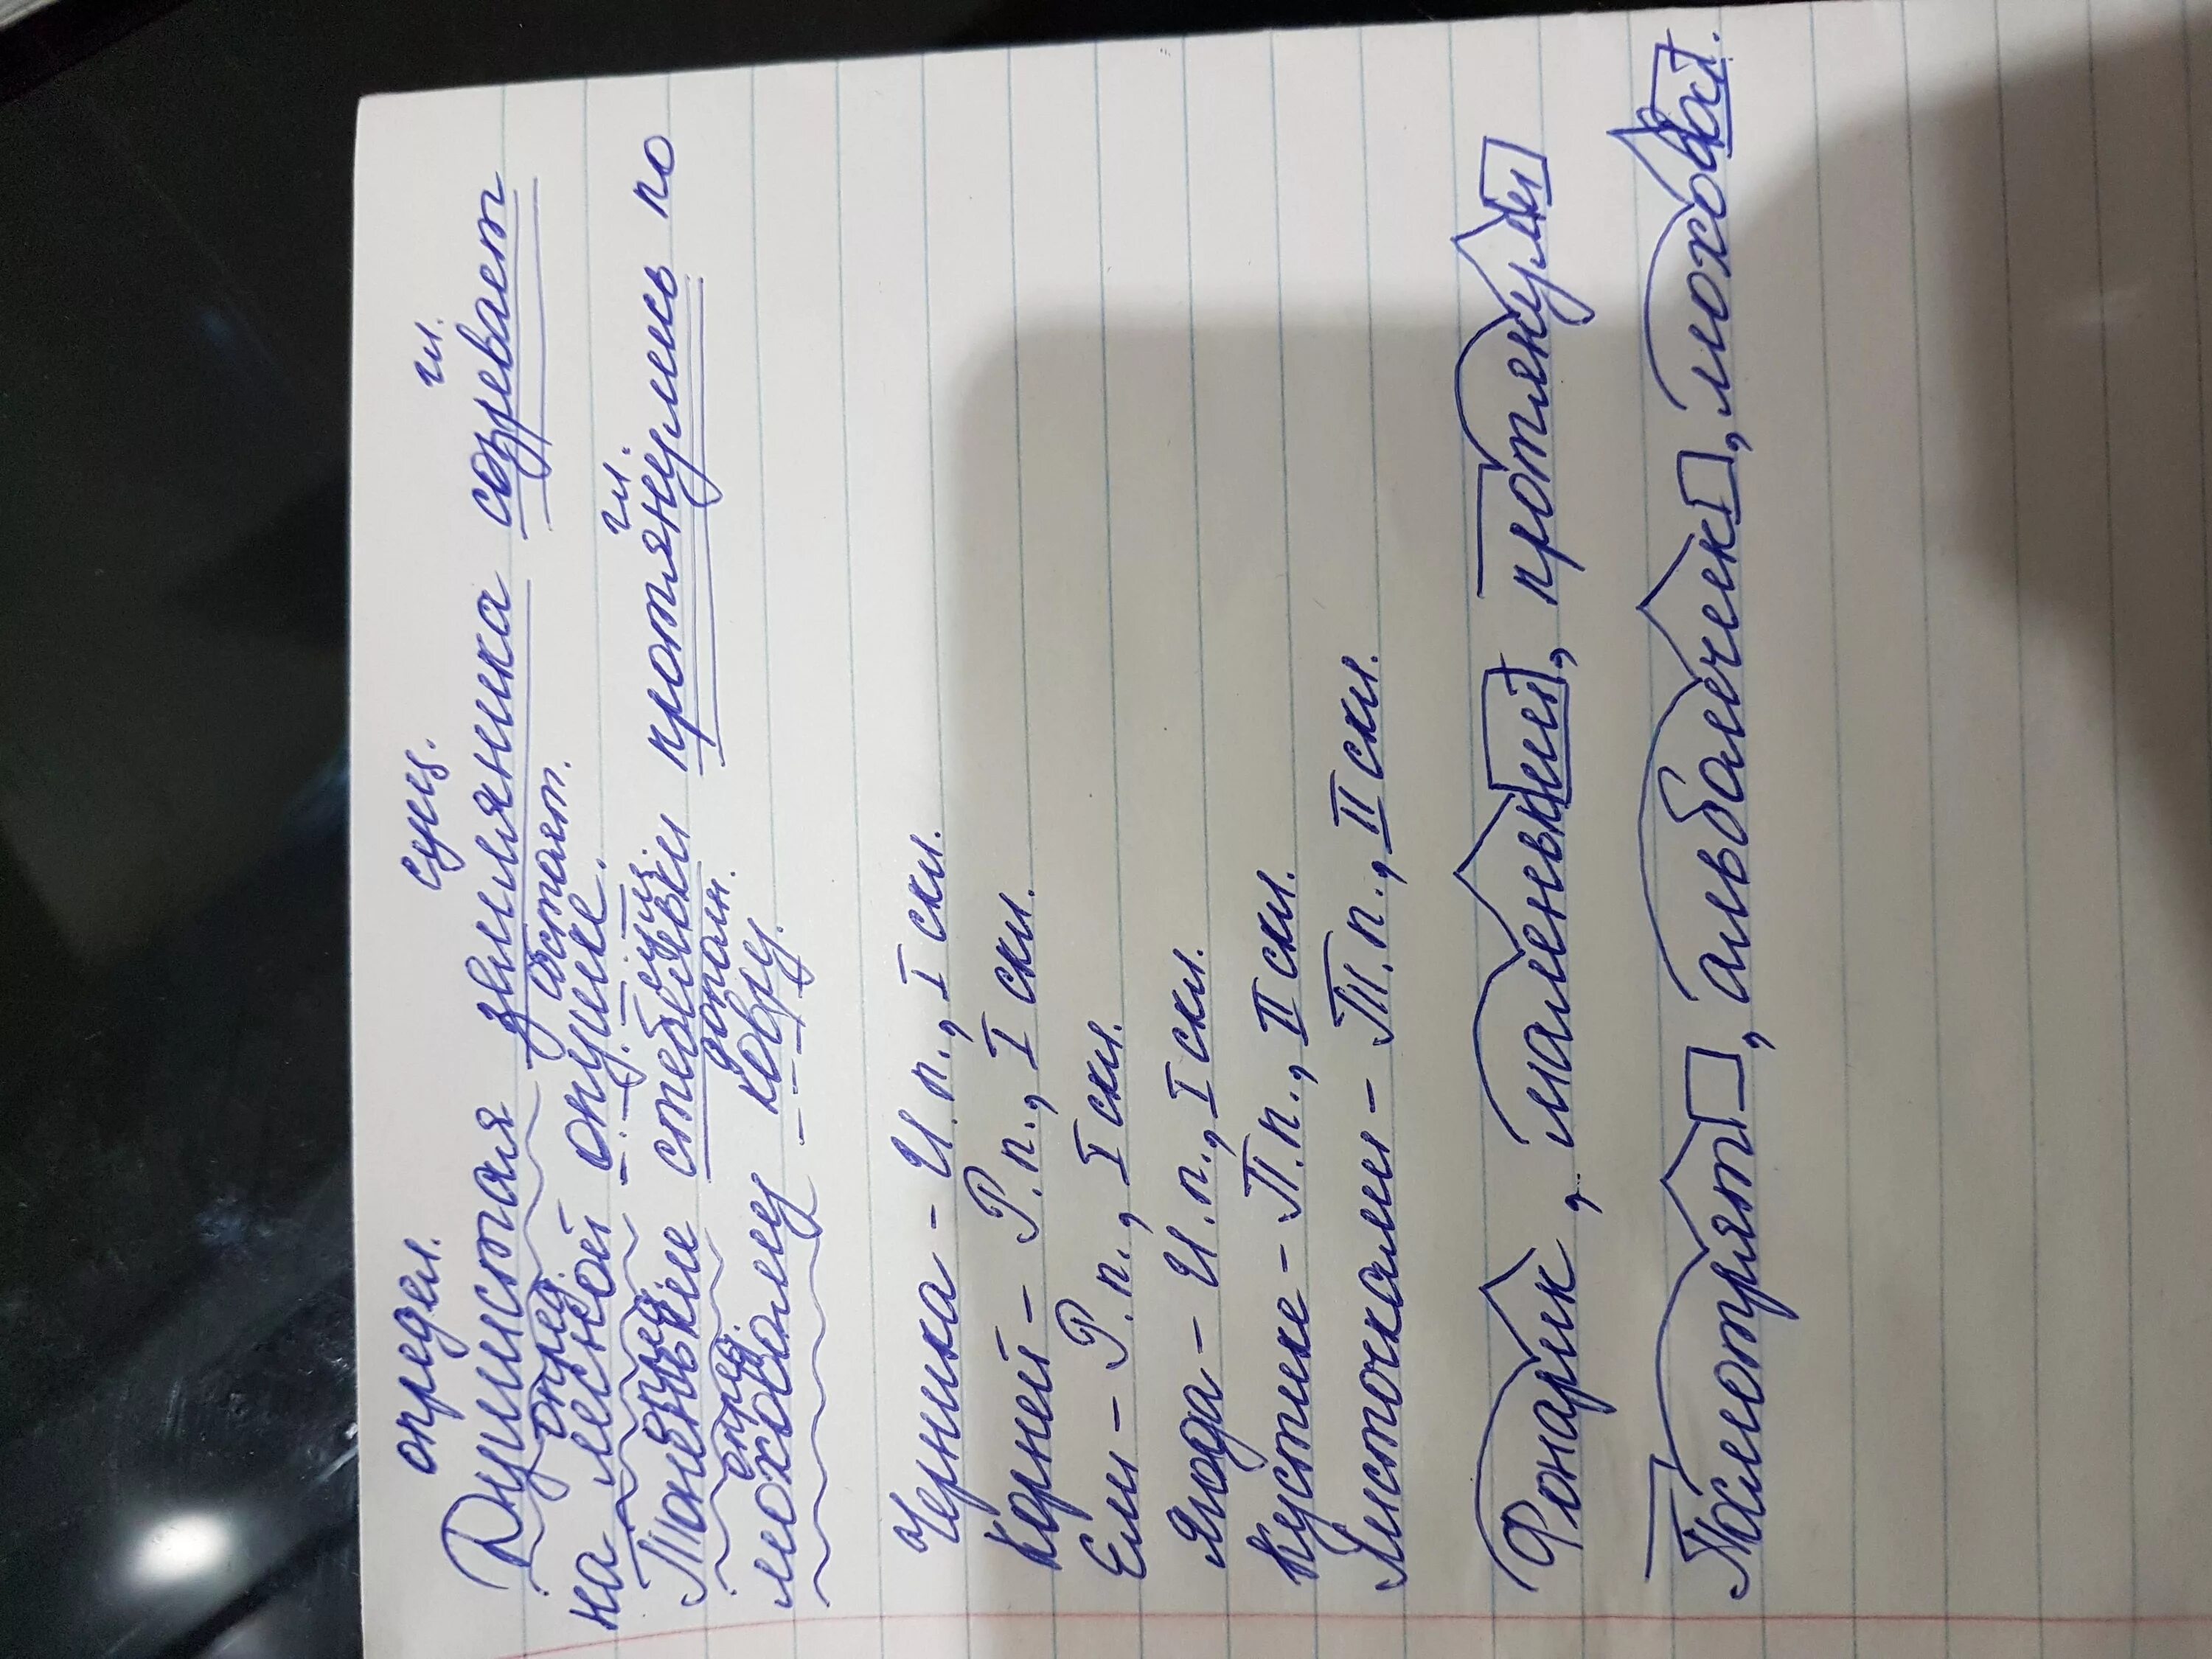 определ. сущ. гл.
Душистая земляника созревает
опред. обстоят.
на лесной опушке.
опред. сущ. гл.
Тоненькие стебельки протянулись по
опред. дополн.
моховому ковру.
Черника - И.п., I скл.
Корней - Р.п., I скл.
Ели - Р.п., I скл.
Ягода - И.п., I скл.
Кустике - П.п., II скл.
Листочками - Т.п., II скл.
Фонарик, маленькие, протянули
Посмотрят, альбомчик, моховой.